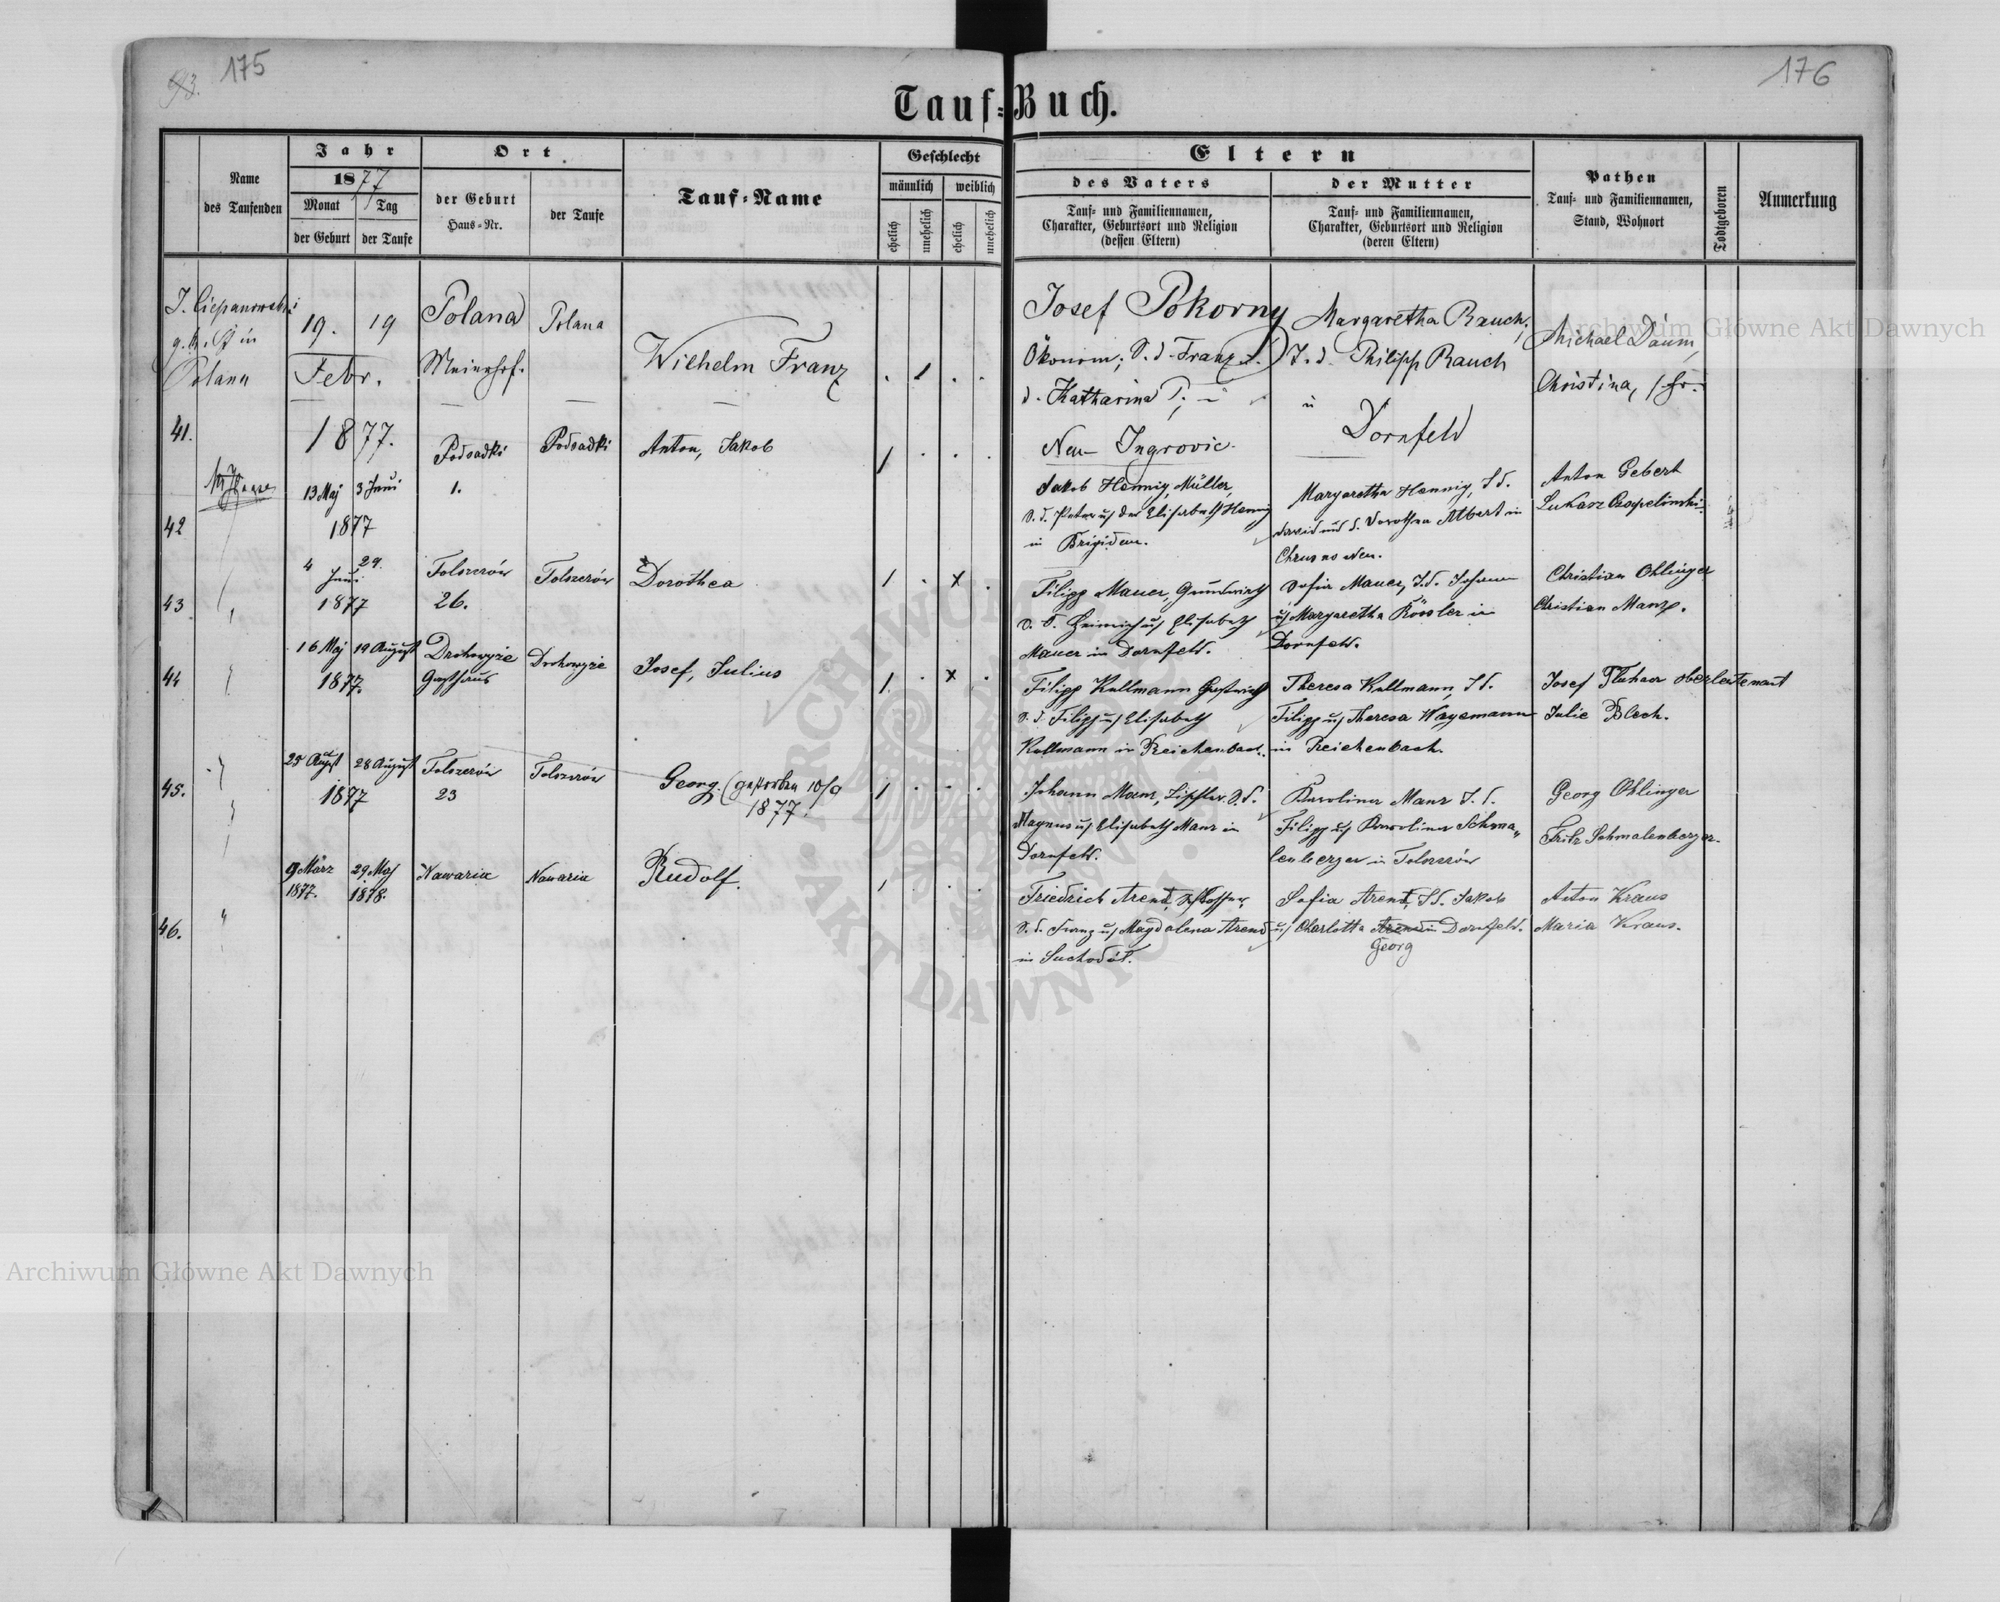 93. 175
176
Tauf=Buch.
Name des Taufenden
Jahr
1877
Monat
Tag
der Geburt
der Taufe
Ort
der Geburt
Haus=Nr.
der Taufe
Tauf=Name
Geschlecht
männlich
weiblich
ehelich
unehelich
ehelich
unehelich
Eltern
des Vaters
Tauf= und Familiennamen,
Charakter, Geburtsort und Religion
(dessen Eltern)
der Mutter
Tauf= und Familiennamen,
Charakter, Geburtsort und Religion
(deren Eltern)
Pathen
Tauf= und Familiennamen,
Stand, Wohnort
Todtgeboren
Anmerkung
in
Polana
41.
19. 19
Febr.
1877.
Polana
Meierhof.
Polana
Wilhelm Franz
Josef Pokorny
Ökonom, S. d. Franz u.
d. Katharina P.,
Neu-Ingrovic.
Margaretha Rauch,
T. d. Philipp Rauch
Dornfeld
Michael Daum,
Christina,
42
13 Maj 3 Juni
1877
Podsadki
1.
Podsadki
Anton, Jakob
1
Jakob Hennig, Müller,
S. d. Peter u der Elisabeth Hennig
in Brigidau.
Margaretha Hennig, T. d.
David und d. Dorothea Albert in
Anton Gebert
Lukasz
43
4 29.
Juni
1877
Tolszczów
26.
Tolszczów
Dorothea
1 . x .
Filipp Mauer, Grundwirth
S. d. Heinrich u Elisabeth
Mauer in Dornfeld.
Sofia Mauer, T. d. Johann
u Margaretha Rössler in
Dornfeld.
Christian Ohlinger
Christian Manz.
44
16 Maj 19 August
1877.
Drohowyże
Gasthaus
Drohowyże
Josef, Julius
1. . x .
Filipp Kullmann Gastwirth
S. d. Filipp u Elisabeth
Kullmann in Reichenbach.
Theresa Kullmann, T. d.
Filipp u Theresa Wagemann
in Reichenbach.
Josef Oberleitenant
Julie Blech.
45.
25 August 28 August
1877
Tolszczów
23
Tolszczów
Georg. (gestorben 10/9
1877.
1
Johann Manz, Tischler S. d.
Magnus u Elisabeth Manz in
Dornfeld.
Karolina Manz T. d.
Filipp u Karolina Schma„
lenberger in Tolszczów
Georg Ohlinger
Fritz Schmalenberger.
46.
9 März 29. Maj
1877. 1878.
Nawaria
Nawaria
Rudolf.
Friedrich Arend, Schlosser,
S. d. Franz u Magdalena Arend
in Suchodół.
Sofia Arend, T. d. Jakob
u Charlotta Arend in Dornfeld.
Georg
Anton Kraus
Maria Kraus.
Archiwum Główne Akt Dawnych
Archiwum Główne Akt Dawnych
ARCHIWUM GŁÓWNE · AKT DAWNYCH ·